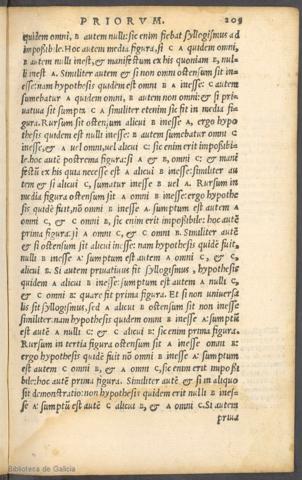 PRIORVM. 209
quidem omni, B autem nulli: sic enim fiebat syllogismus ad
impoßibile. Hoc autem media figura, si C A quidem omni,
B autem nulli inest, & manifestum ex his quoniam B, nul-
li inest A. Similiter autem & si non omni ostensum sit in-
esse: nam hypothesis quidem est omni B A inesse: C autem
sumebatur A quidem omni, B autem non omni: & si pri-
uatiua sit sumpta C A similiter etenim sic fit in media fi-
gura. Rursum sit ostensum alicui B inesse A, ergo hypo
thesis quidem est nulli inesse: B autem sumebatur omni C
inesse, & A uel omni, uel alicui C: sic enim erit impoßibi-
le. hoc autē postrema figura: si A & B, omni C: & mani
festū ex his quia necesse est A alicui B inesse: similiter au
tem & si alicui C, sumatur inesse B uel A. Rursum in
media figura ostensum sit A omni B inesse: ergo hypothe
sis quidē fuit, nō omni B inesse A. sumptum est autem A
omni C, & C omni B, sic enim erit impoßibile: hoc autē
prima figura: si A omni C, & C omni B. Similiter autē
& si ostensum sit alicui inesse: nam hypothesis quidē fuit,
nulli B inesse A: sumptum est autem A omni C, & C,
alicui B. Si autem priuatiuus fit syllogismus, hypothesis
quidem A alicui B inesse: sumptum est autem A nulli
C, & C omni B: quare fit prima figura. Et si non uniuersa
lis sit syllogismus, sed A alicui B ostensum sit non inesse
similiter: nam hypothesis quidem omni B inesse A: sumptū
est autē A nulli C: & C alicui B: sic enim prima figura.
Rursum in tertia figura ostensum sit A inesse omni B:
ergo hypothesis quidē fuit nō omni B inesse A: sumptum
est autem C omni B, & A omni C, sic enim erit impoßi
bile: hoc autē prima figura. Similiter autē & si in aliquo
sit demonstratio: nam hypothesis quidem erit nulli B ines-
se A: sumptū est autē C alicui B, & A omni C. Si autem
priua
Biblioteca de Galicia